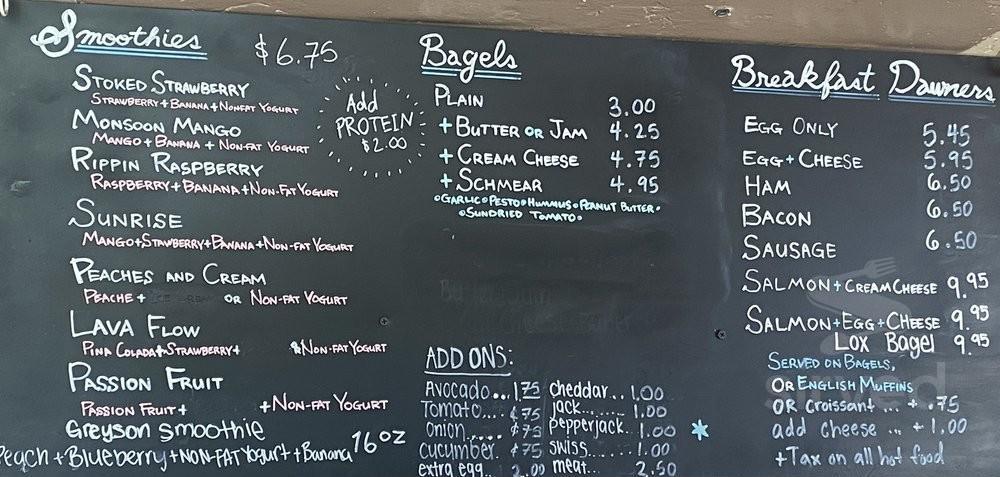 Smoothies $6.75
STOKED STRAWBERRY
STRAWBERRY + BANANA + NONFAT YOGURT
MONSOON MANGO
MANGO + BANANA + NON-FAT YOGURT
RIPPIN RASPBERRY
RASPBERRY + BANANA + NON-FAT YOGURT
SUNRISE
MANGO + STRAWBERRY + BANANA + NON-FAT YOGURT
PEACHES AND CREAM
PEACHE + OR NON-FAT YOGURT
LAVA FLOW
PINA COLADA + STRAWBERRY + & NON-FAT YOGURT
PASSION FRUIT
PASSION FRUIT + + NON-FAT YOGURT
Greyson smoothie
Peach + Blueberry + NON-FAT Yogurt + Banana 16oz
Add
PROTEIN
$2.00
Bagels
PLAIN 3.00
+ BUTTER OR JAM 4.25
+ CREAM CHEESE 4.75
+ SCHMEAR 4.95
• GARLIC • PESTO • HUMMUS • PEANUT BUTTER •
• SUNDRIED TOMATO •
ADD ONS:
Avocado... 1.75 cheddar.. 1.00
Tomato... .75 jack....... 1.00
onion..... .75 pepperjack. 1.00
cucumber. .75 swiss..... 1.00
extra egg.. 2.00 meat... 2.50
Breakfast Dawners
EGG ONLY 5.45
EGG + CHEESE 5.95
HAM 6.50
BACON 6.50
SAUSAGE 6.50
SALMON + CREAM CHEESE 9.95
SALMON + EGG + CHEESE 9.95
Lox Bagel 9.95
SERVED ON BAGELS,
OR ENGLISH MUFFINS
OR Croissant ... + .75
add cheese ... + 1.00
+ Tax on all hot food